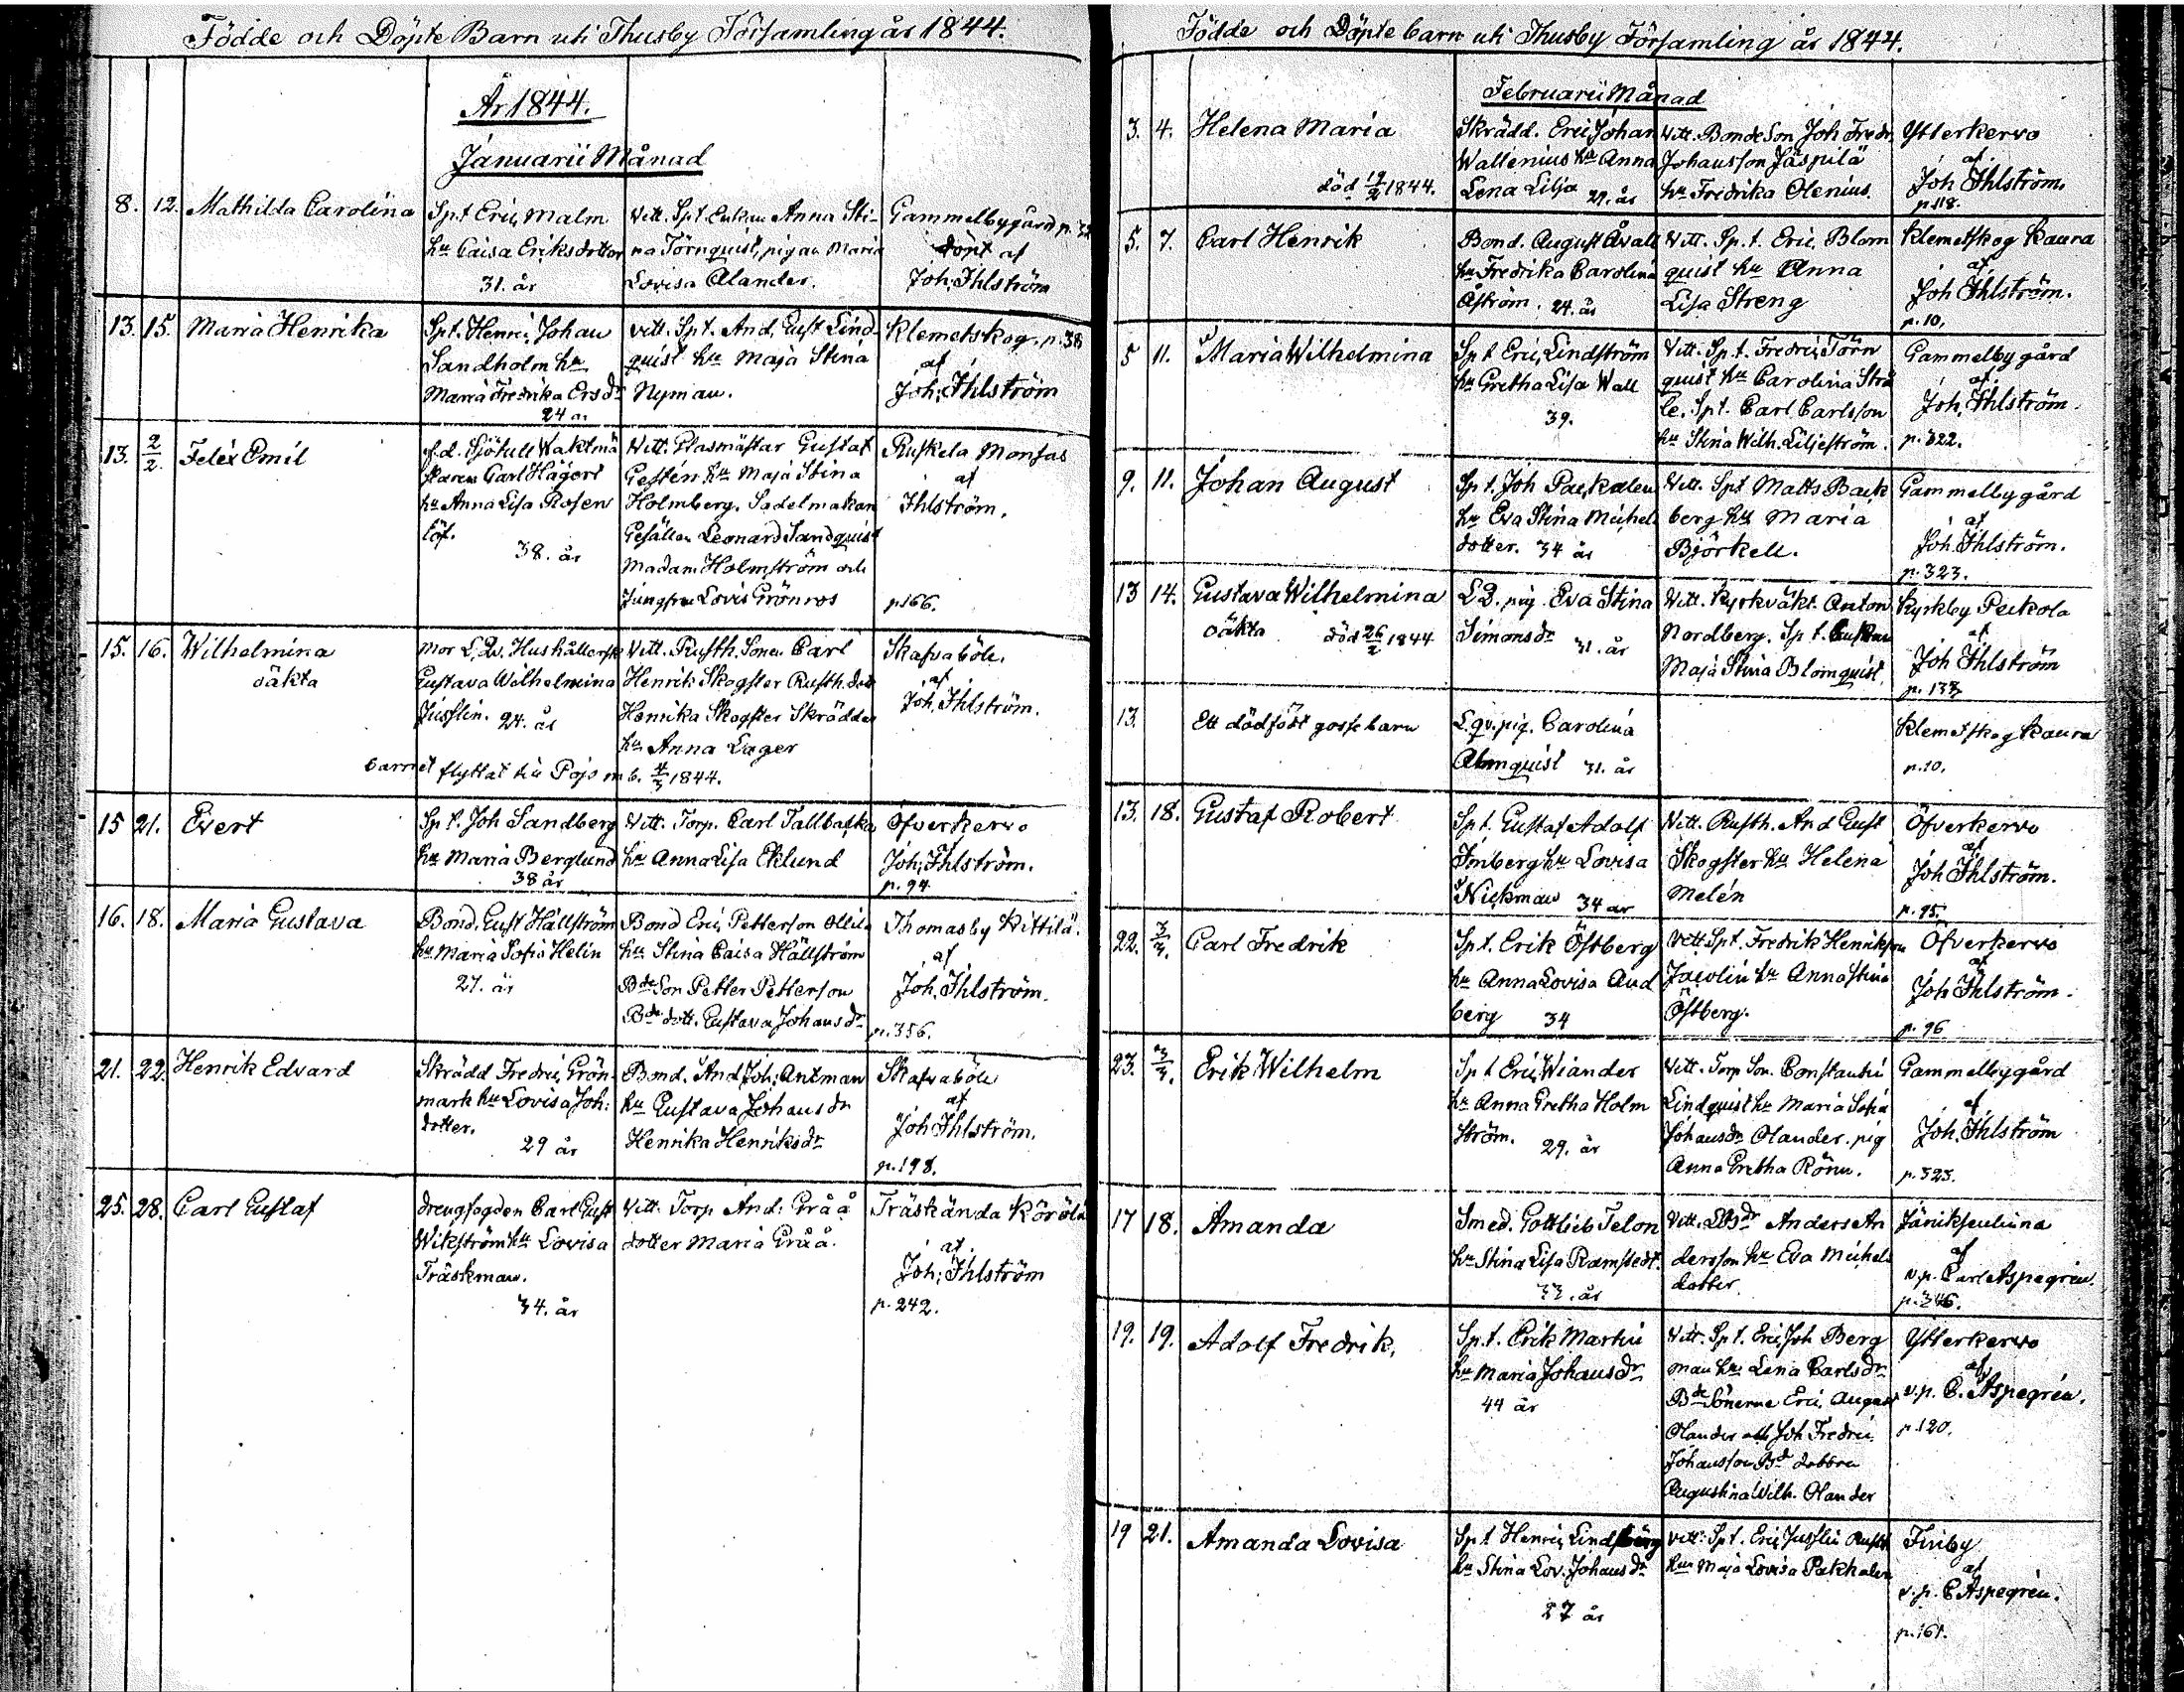 Födde och Döpte Barn uti Thusby Församling år 1844.
År 1844.
Januarii Månad
8. 12. Mathilda Carolina
Spt Eric Malm
hu Caisa Eriksdotter
31. år
Vitt. Spt. Enkan Anna Sti-
na Törnquist, pigan Maria
Lovisa Alander.
Gammelbygård p. 32
döpt af
Joh. Ihlström
13. 15. Maria Henrika
Spt. Henric Johan
Sandholm hu
Maria Fredrika Ersdr
24 år
Vitt. Spt. And. Gust Lind-
quist hu Maja Stina
Nyman.
Klemetskog. p. 38
af
Joh: Ihlström
13. 2/2. Felix Emil
f.d. Sjötull Waktmä
staren Carl Hägert
hu Anna Lisa Rosen
löf.
38. år
Witt. Glasmästar Gustaf
Gestén hu Maja Stina
Holmberg. Sadelmakar
Gesällen Leonard Sandquist
Madam Holmström och
Jungfru Lovis Grönros
Ruskela Monsas
af
Ihlström.
p 166.
15. 16. Wilhelmina
oäkta
Mor L. Qv. Hushållersk
Gustava Wilhelmina
Jusslin. 24. år
Vitt. Rusth. Sonen Carl
Henrik Skogster Rusth. dott
Henrika Skogster Skrädda
hu Anna Lager
Skafvaböle.
af
Joh. Ihlström.
barnet flyttat till Pojo m b. 4/3 1844.
15 21. Evert
Spt. Joh Sandberg
hu Maria Berglund
38 år
Vitt. Torp. Carl Tallbacka
hu Anna Lisa Eklund
Öfverkervo
Joh: Ihlström.
p. 94
16. 18. Maria Gustava
Bond. Gust Hällström
hu Maria Sofia Helin
27. år
Bond Eric Petterson Ollila
hu Stina Caisa Hällström
Bde Son Petter Petterson
Bde dott. Gustava Johansdr
Thomasby Kittilä.
af
Joh. Ihlström.
p. 356.
21. 22. Henrik Edvard
Skrädd Fredric Grön
mark hu Lovisa Joh:
dotter.
29 år
Bond. And Joh: Antman
hu Gustava Johansdr
Henrika Henriksdr
Skafvaböle
af
Joh Ihlström.
p. 198.
25. 28. Carl Gustaf
Drengfogden Carl Gust
Wikström hu Lovisa
Träskman.
34. år
Vitt. Torp And: Gråå
dotter Maria Gråå.
Träskända Körölä
af
Joh: Ihlström
p. 242.
Födde och Döpte barn uti Thusby Församling år 1844.
Februarii Månad
3. 4. Helena Maria
död 19/2 1844.
Skrädd. Eric Johan
Wallenius hu Anna
Lena Lilja 29. år
Vitt. Bonde Son Joh Fredr.
Johansson Jäspilä
hu Fredrika Olenius.
Ytterkervo
af
Joh Ihlström.
p. 118.
5. 7. Carl Henrik
Bond. August Åvall
hu Fredrika Carolina
Åström. 24. år
Vitt. Spt. Eric Blom
quist hu Anna
Lisa Streng
Klemetskog Kaura
af
Joh Ihlström.
p. 10.
5 11. Maria Wilhelmina
Spt Eric Lindström
hu Gretha Lisa Wall
39.
Vitt. Spt. Fredric Törn
quist hu Carolina Strå
le. Spt. Carl Carlsson
hu Stina Wilh. Liljeström.
Gammelby gård
af
Joh. Ihlström.
p. 322.
9. 11. Johan August
Spt. Joh Packalen
hu Eva Stina Michels
dotter. 34 år
Vitt. Spt Matts Back
berg hu Maria
Björkell.
Gammelby gård
af
Joh. Ihlström.
p. 323.
13 14. Gustava Wilhelmina
oäkta död 26/2 1844
L. Q. pig. Eva Stina
Simonsdr 31. år
Vitt. Kyrkväkt. Anton
Nordberg. Spt. Enkan
Maja Stina Blomquist.
Kyrkby Peckola
af
Joh Ihlström
p. 137
13. Ett dödfödt gosse barn
L. qv. pig. Carolina
Almquist 31. år
Klemetskog Kaura
p. 10.
13. 18. Gustaf Robert
Spt. Gustaf Adolf
Imberg hu Lovisa
Nickman 34 år
Vitt. Rusth. And Gust
Skogster hu Helena
Melén
Öfverkervo
af
Joh Ihlström.
p. 95.
22. 3/3. Carl Fredrik
Spt. Erik Östberg
hu Anna Lovisa Aud
berg 34
Vitt Spt. Fredrik Henriksson
hu Anna Stina
Östberg.
Öfverkervo
af
Joh Ihlström.
p. 96
23. 3/3. Erik Wilhelm
Spt Eric Wiander
hu Anna Gretha Holm
ström. 29. år
Vitt. Torp Son. Constantin
Lindquist hu Maria Sofia
Johansdr Olander. pig
Anna Gretha Rönn.
Gammelbygård
af
Joh. Ihlström
p. 323.
17 18. Amanda
Smed. Gottlieb Telon
hu Stina Lisa Ramstedt.
33. år
Vitt. Anders An
dersson hu Eva Michels
dotter.
af
v.p. Carl Aspegrén.
p. 346.
19. 19. Adolf Fredrik.
Spt. Erik Martin
hu Maria Johansdr
44 år
Vitt. Spt. Eric Joh Berg
man hu Lena Carlsdr
Bde Sönerne Eric August
Olander och Joh Fredric
Johansson Bd dottren
Augustina Wilh. Olander
Ytterkervo
af
v.p. C. Aspegrén.
p. 120.
19 21. Amanda Lovisa
Spt Henric Lindberg
hu Stina Lov. Johansdr
27 år
Vitt. Spt. Eric Jusslin Rusth
hu Maja Lovisa Pakhalen
Finby
af
v.p. C Aspegrén.
p. 161.